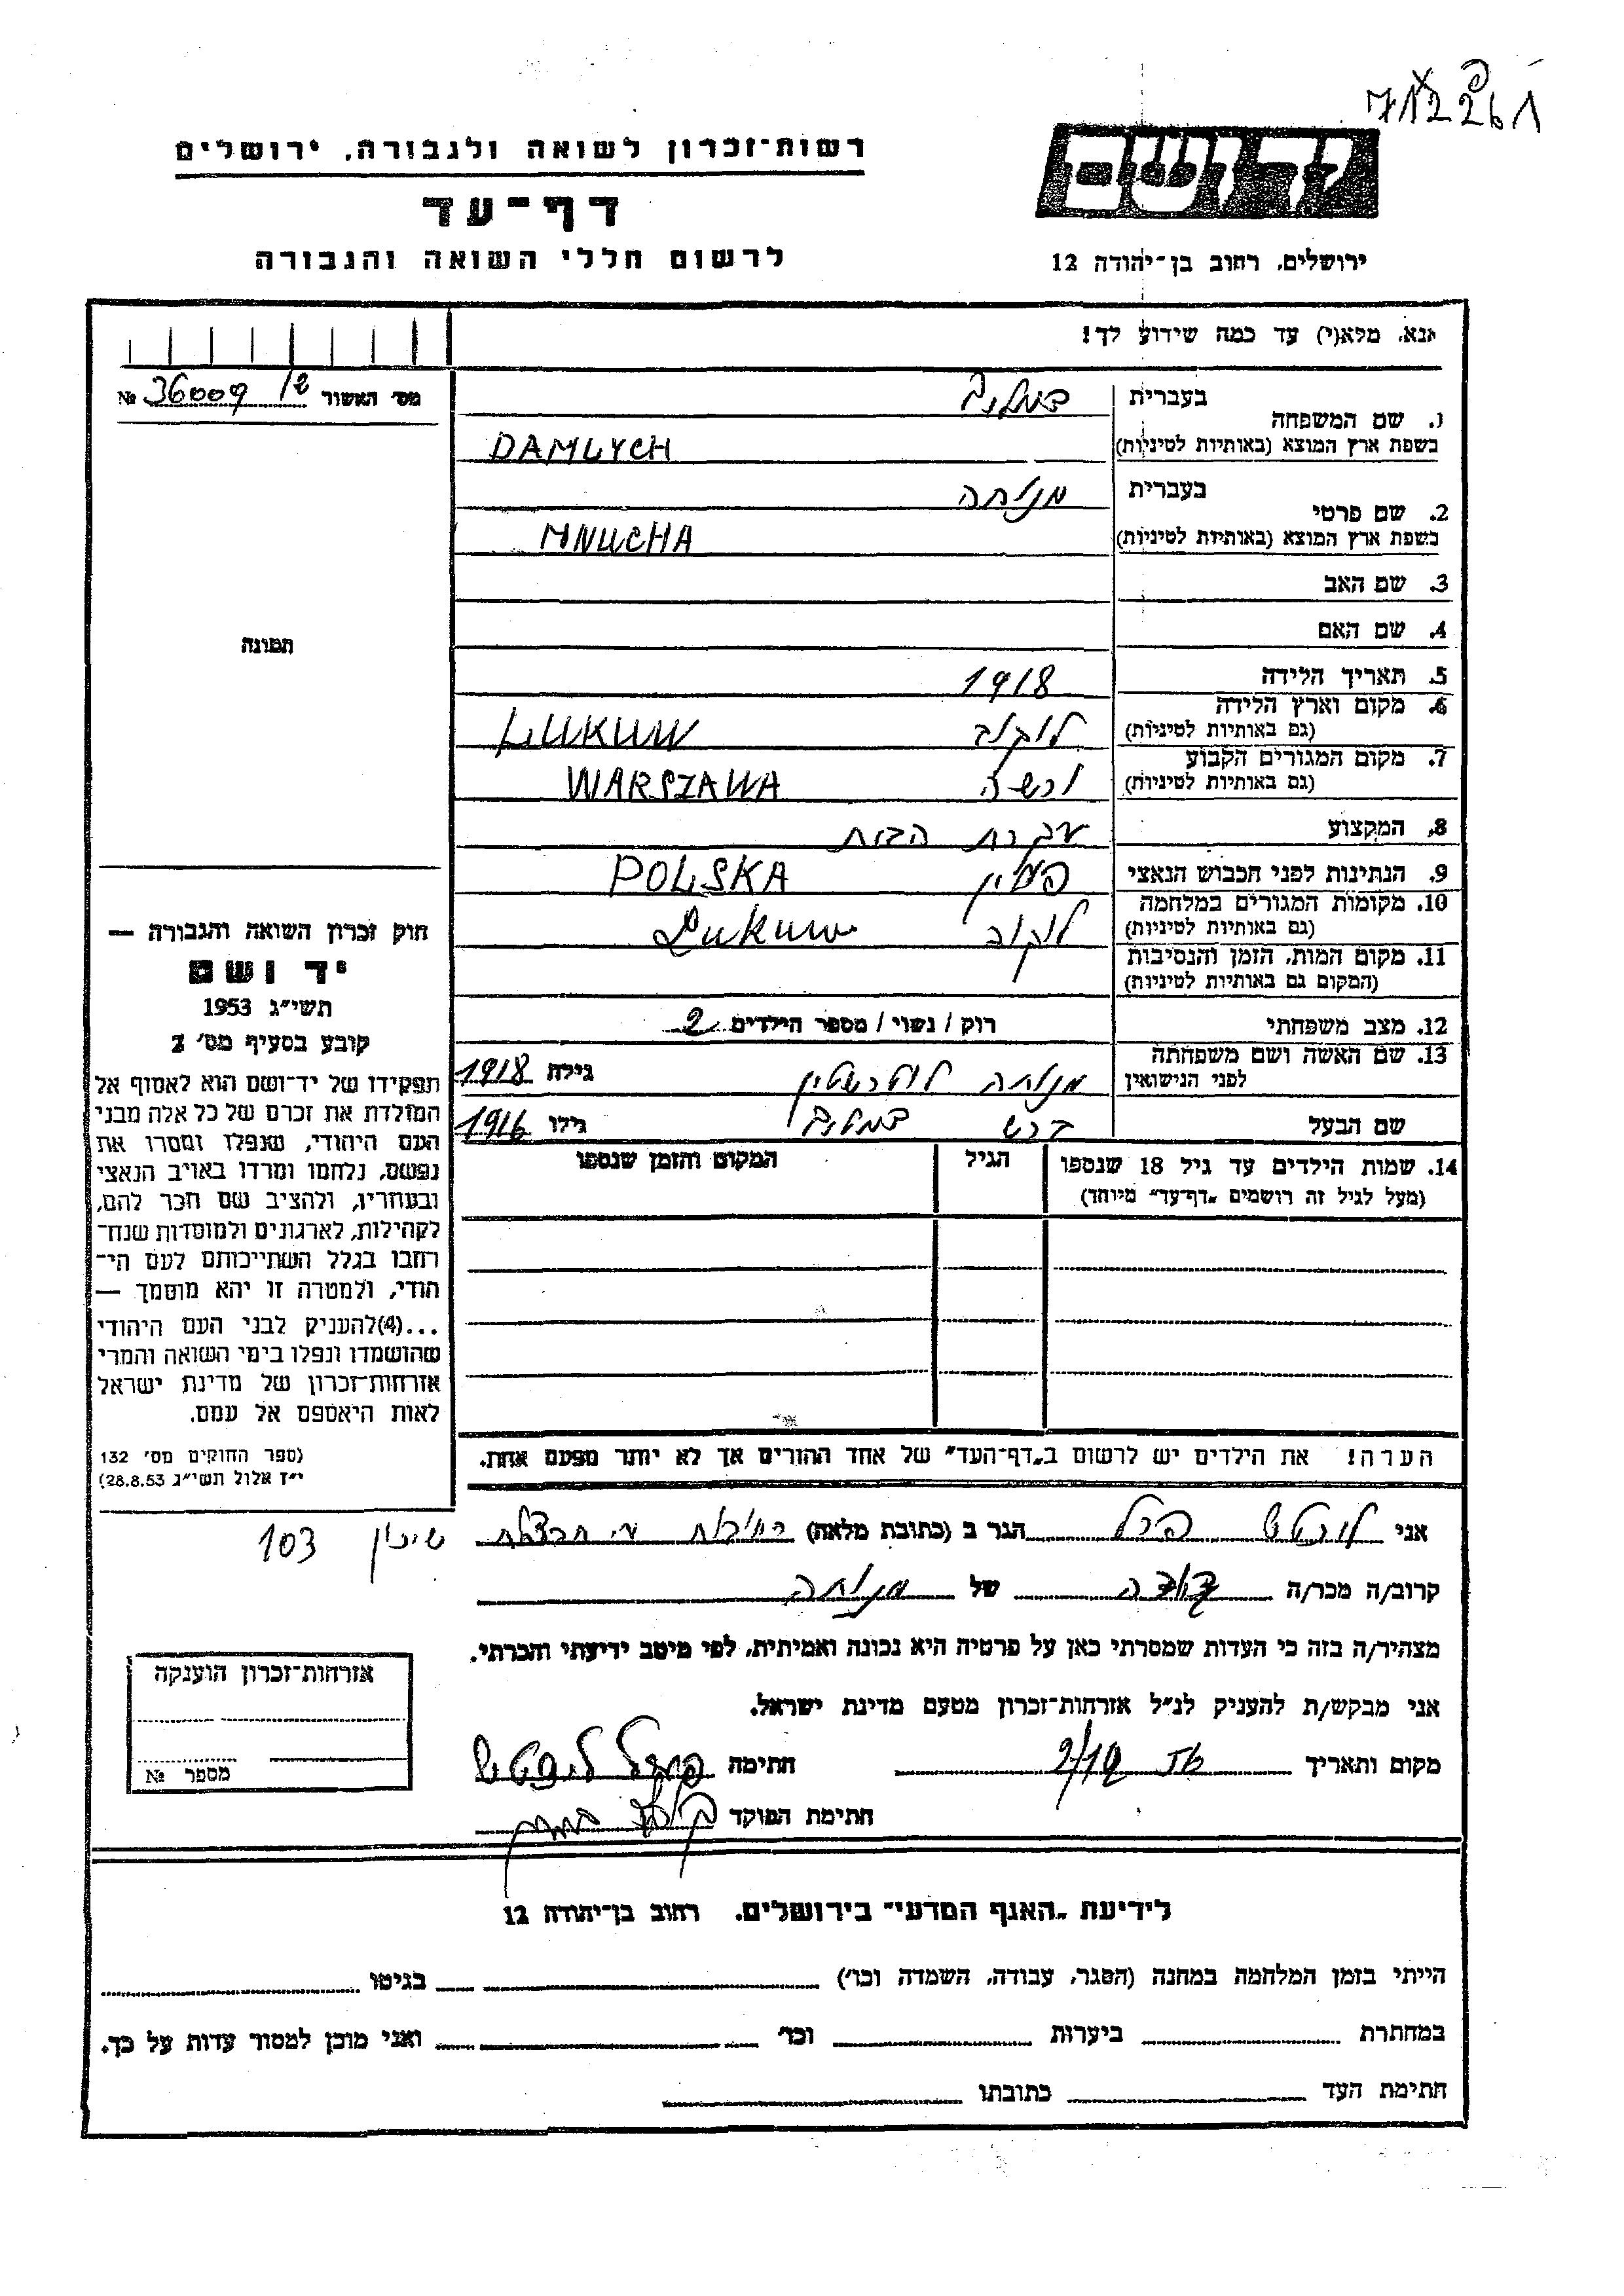 רשות־זכרון לשואה ולגבורה, ירושלים
דף־עד
לרשום חללי השואה והגבורה
ידושם
ירושלים, רחוב בן־יהודה 12
אנא, מלא(י) עד כמה שידוע לך!
מס׳ האשור № 36009
בעברית
1. שם המשפחה
בשפת ארץ המוצא (באותיות לטיניות) DAMLYCH
בעברית מנוחה
2. שם פרטי
בשפת ארץ המוצא (באותיות לטיניות) MNUCHA
3. שם האב
4. שם האם
תמונה
5. תאריך הלידה 1918
6. מקום וארץ הלידה
(גם באותיות לטיניות) לוקוב LUKUW
7. מקום המגורים הקבוע
(גם באותיות לטיניות) ורשה WARSZAWA
8. המקצוע עקרת הבית
9. הנתינות לפני הכבוש הנאצי פולין POLSKA
10. מקומות המגורים במלחמה
(גם באותיות לטיניות) לוקוב Lukuw
11. מקום המות, הזמן והנסיבות
(המקום גם באותיות לטיניות)
12. מצב משפחתי רוק / נשוי / מספר הילדים 2
13. שם האשה ושם משפחתה
לפני הנישואין מנוחה גילה 1918
שם הבעל גילו 1916
14. שמות הילדים עד גיל 18 שנספו
(מעל לגיל זה רושמים „דף־עד״ מיוחד)
הגיל
המקום והזמן שנספו
הערה! את הילדים יש לרשום ב„דף־העד״ של אחד ההורים אך לא יותר מפעם אחת.
חוק זכרון השואה והגבורה —
יד ושם
תשי״ג 1953
קובע בסעיף מס׳ 2
תפקידו של יד־ושם הוא לאסוף אל
המולדת את זכרם של כל אלה מבני
העם היהודי, שנפלו ומסרו את
נפשם, נלחמו ומרדו באויב הנאצי
ובעוזריו, ולהציב שם וזכר להם,
לקהילות, לארגונים ולמוסדות שנח־
רבו בגלל השתייכותם לעם הי־
הודי, ולמטרה זו יהא מוסמך —
...(4)להעניק לבני העם היהודי
שהושמדו ונפלו בימי השואה והמרי
אזרחות־זכרון של מדינת ישראל
לאות היאספם אל עמם.
(ספר החוקים מס׳ 132
י״ז אלול תשי״ג 28.8.53)
אני הגר ב (כתובת מלאה) רחובות שיכון 103
קרוב/ה מכר/ה דודה של מנוחה
מצהיר/ה בזה כי העדות שמסרתי כאן על פרטיה היא נכונה ואמיתית, לפי מיטב ידיעתי והכרתי.
אני מבקש/ת להעניק לנ״ל אזרחות־זכרון מטעם מדינת ישראל.
מקום ותאריך חתימה
חתימת הפוקד
אזרחות־זכרון הוענקה
מספר №
לידיעת „האגף המדעי״ בירושלים, רחוב בן־יהודה 12
הייתי בזמן המלחמה במחנה (הסגר, עבודה, השמדה וכו׳) בגיטו
במחתרת ביערות וכו׳ ואני מוכן למסור עדות על כך.
חתימת העד כתובתו